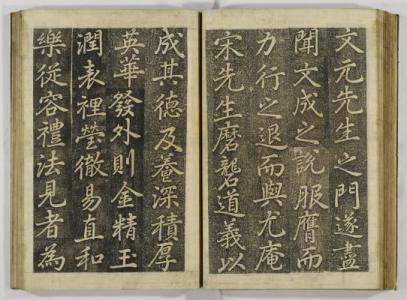 文元先生之門遂盡
聞文成之說服膺而
力行之退而與尤庵
宋先生磨礱道義以
成其德及養深積厚
英華發外則金精玉
潤表裡瑩徹易直和
樂從容禮法見者為